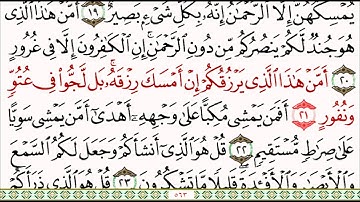 يُمْسِكُهُنَّ إِلَّا ٱلرَّحْمَٰنُ إِنَّهُۥ بِكُلِّ شَىْءٍۭ بَصِيرٌ ١٩ أَمَّنْ هَٰذَا ٱلَّذِى
هُوَ جُندٌ لَّكُمْ يَنصُرُكُم مِّن دُونِ ٱلرَّحْمَٰنِ ۚ إِنِ ٱلْكَٰفِرُونَ إِلَّا فِى غُرُورٍ
٢٠ أَمَّنْ هَٰذَا ٱلَّذِى يَرْزُقُكُمْ إِنْ أَمْسَكَ رِزْقَهُۥ ۚ بَل لَّجُّوا۟ فِى عُتُوٍّ
وَنُفُورٍ ٢١ أَفَمَن يَمْشِى مُكِبًّا عَلَىٰ وَجْهِهِۦٓ أَهْدَىٰٓ أَمَّن يَمْشِى سَوِيًّا
عَلَىٰ صِرَٰطٍ مُّسْتَقِيمٍ ٢٢ قُلْ هُوَ ٱلَّذِىٓ أَنشَأَكُمْ وَجَعَلَ لَكُمُ ٱلسَّمْعَ
وَٱلْأَبْصَٰرَ وَٱلْأَفْـِٔدَةَ ۖ قَلِيلًا مَّا تَشْكُرُونَ ٢٣ قُلْ هُوَ ٱلَّذِى ذَرَأَكُمْ
٥٦٣